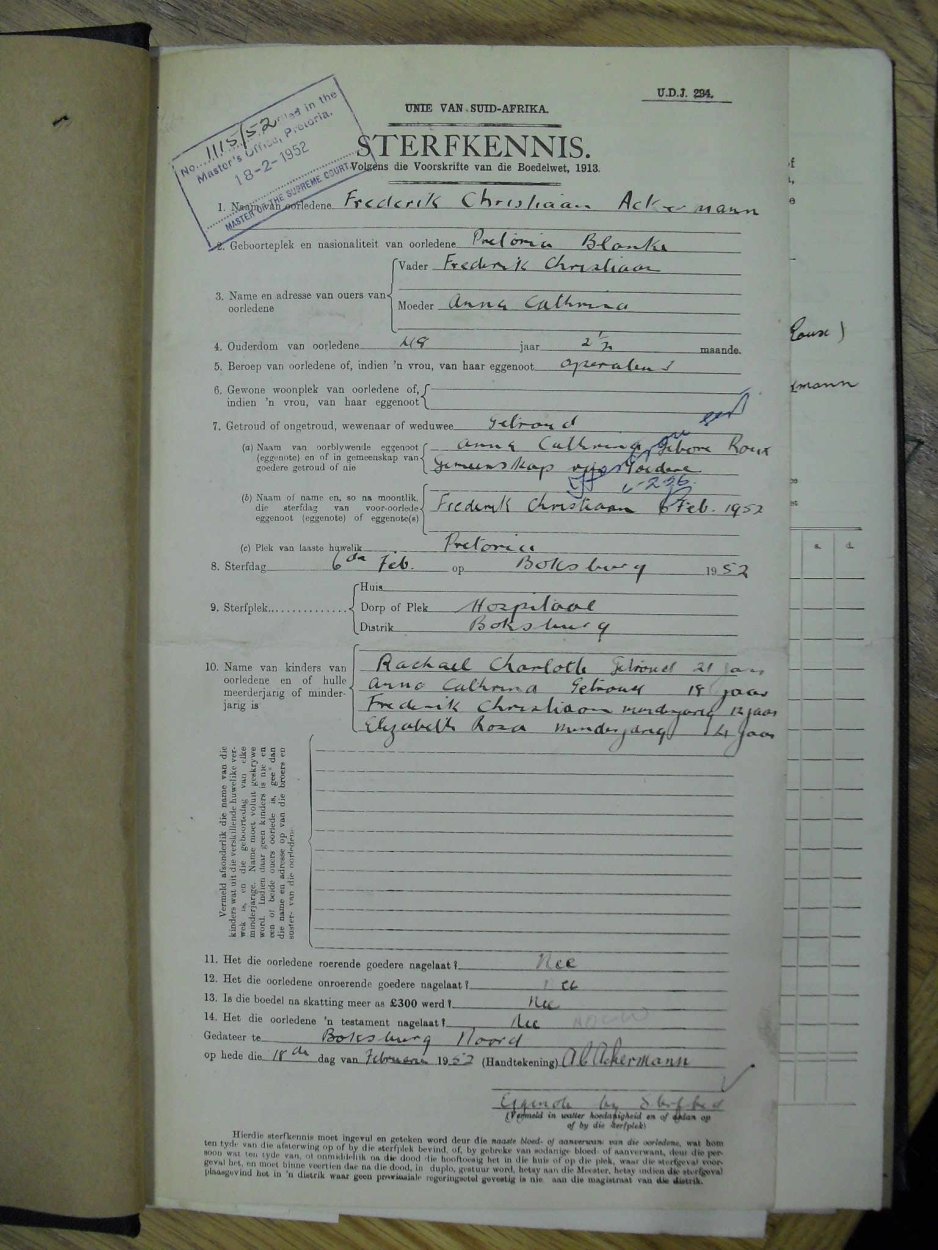 U.D.J. 294.
UNIE VAN SUID-AFRIKA.
STERFKENNIS.
Volgens die Voorskrifte van die Boedelwet, 1913.
No. 1115/52 Filed in the
Master's Office, Pretoria.
18-2-1952
MASTER OF THE SUPREME COURT
1. Naam van oorledene Frederik Christiaan Ackermann
2. Geboorteplek en nasionaliteit van oorledene Pretoria Blanke
Vader Frederik Christiaan
3. Name en adresse van ouers van oorledene
Moeder Anna Cathrina
4. Ouderdom van oorledene 48 jaar 2½ maande.
5. Beroep van oorledene of, indien 'n vrou, van haar eggenoot
6. Gewone woonplek van oorledene of,
indien 'n vrou, van haar eggenoot
7. Getroud of ongetroud, wewenaar of weduwee Getroud
(a) Naam van oorblywende eggenoot Anna Cathrina Gebore Roux
(eggenote) en of in gemeenskap van Gemeenskap van Goedere
goedere getroud of nie
6-2-26
(b) Naam of name en, so na moontlik,
die sterfdag van voor-oorlede Frederik Christiaan 6 Feb. 1952
eggenoot (eggenote) of eggenote(s)
(c) Plek van laaste huwelik Pretoria
8. Sterfdag 6de Feb. op Boksburg 1952
Huis
9. Sterfplek Dorp of Plek Hospitaal
Distrik Boksburg
10. Name van kinders van Rachael Charlotte Getroud 21 jaar
oorledene en of hulle Anna Cathrina Getroud 18 jaar
meerderjarig of minder- Frederik Christiaan minderjarig 12 jaar
jarig is Elizabeth Rosa minderjarig 4 jaar
Vermeld afsonderlik die name van die
kinders wat uit die verskillende huwelike ver-
wek is, en die geboortedag van elke
minderjarige. Name moet voluit geskrywe
word. Indien daar geen kinders is nie en
een of beide ouers oorlede is, gee dan
die name en adresse op van die broers en
susters van die oorledene.
11. Het die oorledene roerende goedere nagelaat? Nee
12. Het die oorledene onroerende goedere nagelaat? Nee
13. Is die boedel na skatting meer as £300 werd? Nee
14. Het die oorledene 'n testament nagelaat? Nee
Gedateer te Boksburg Noord
op hede die 18de dag van Februarie 1952 (Handtekening) A C Ackermann
Eggenote by Sterfbed
(Vermeld in watter hoedanigheid en of aldan op
of by die sterfplek)
Hierdie sterfkennis moet ingevul en geteken word deur die naaste bloed- of aanverwant van die oorledene, wat hom
ten tyde van die afsterwing op of by die sterfplek bevind, of, by gebreke van sodanige bloed- of aanverwant, deur die per-
soon wat ten tyde van, of onmiddellik na die dood die hooftoesig het in die huis of op die plek, waar die sterfgeval voor-
geval het, en moet binne veertien dae na die dood, in duplo, gestuur word, hetsy aan die Meester, hetsy indien die sterfgeval
plaasgevind het in 'n distrik waar geen provinsiale regeringsetel gevestig is nie aan die magistraat van die distrik.
s. d.